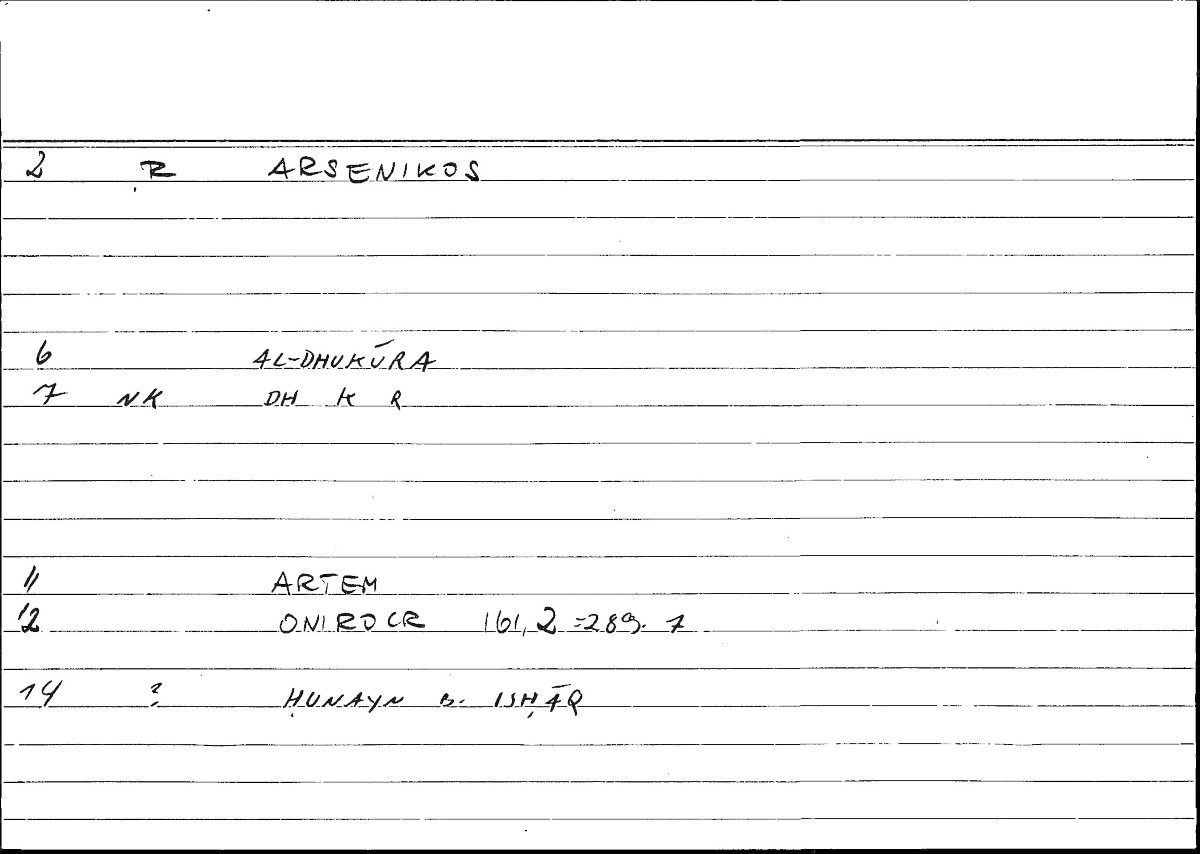 2 R ARSENIKOS
6 AL-DHUKŪRA
7 NK DH K R
11 ARTEM
12 ONIROCR 161, 2 = 289. 7
14 ? ḤUNAYN B. ISḤĀQ